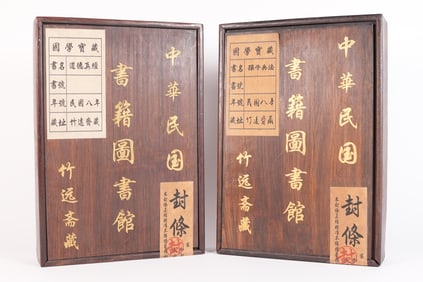 國學寶藏
書名 道德真經
書號
年號 民國八年
藏址 竹遠齋藏
中華民国
書籍圖書館
竹远斋藏
封條
國學寶藏
書名 兵法
書號
年號 民國八年
藏址 竹遠齋藏
中華民国
書籍圖書館
竹远斋藏
封條
封